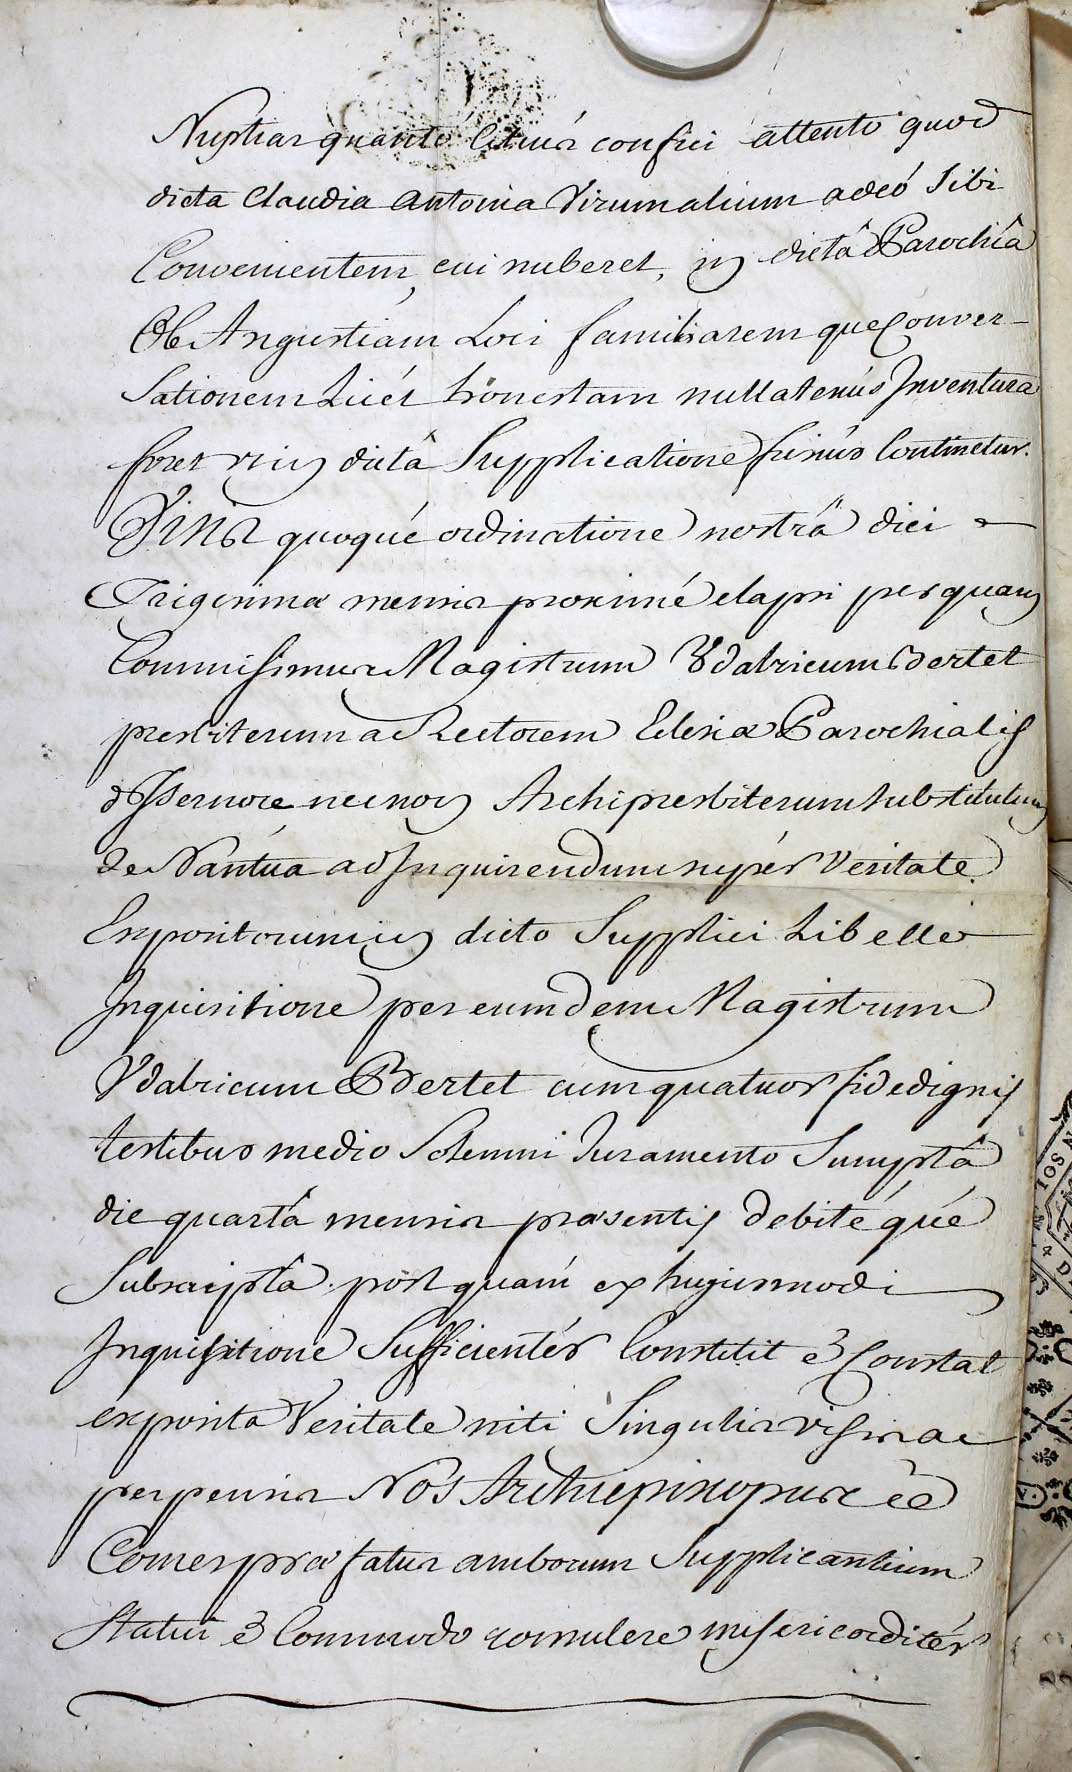 Nuptias quanto citius confici attento quod
dicta Claudia Antonia Virum alium adeó sibi
Convenientem, cui nuberet, in dictâ Parochiâ
Ob Angustiam Loci familiaremque Conver-
Sationem Licét honestam nullatenùs Inventura
foret uti in dictâ Supplicatione fusiùs Continetur.
Visis quoqué ordinatione nostrâ diei
Trigesimæ mensis proximé elapsi per quam
Commisimus Magistrum Udalricum Bertet
presbiterum ac Rectorem Eclesiæ Parochialis
d'Issernore necnon Archipresbiterum substitutum
de Nantua ad Inquirendum supér Veritate
Expositorum in dicto Supplici Libello
Inquisitione per eumdem Magistrum
Udalricum Bertet cum quatuor fide dignis
testibus medio Solemni Juramento Sumptâ
die quartâ mensis præsentis debitéqué
Subscriptâ postquam ex hujusmodi
Inquisitione Sufficientér Constitit & Constat
exposita Veritate niti Singulis visis ac
perpensis Nos Archiepiscopus et
Comes præfatus amborum Supplicantium
Statui & Commodo consulere misericorditér